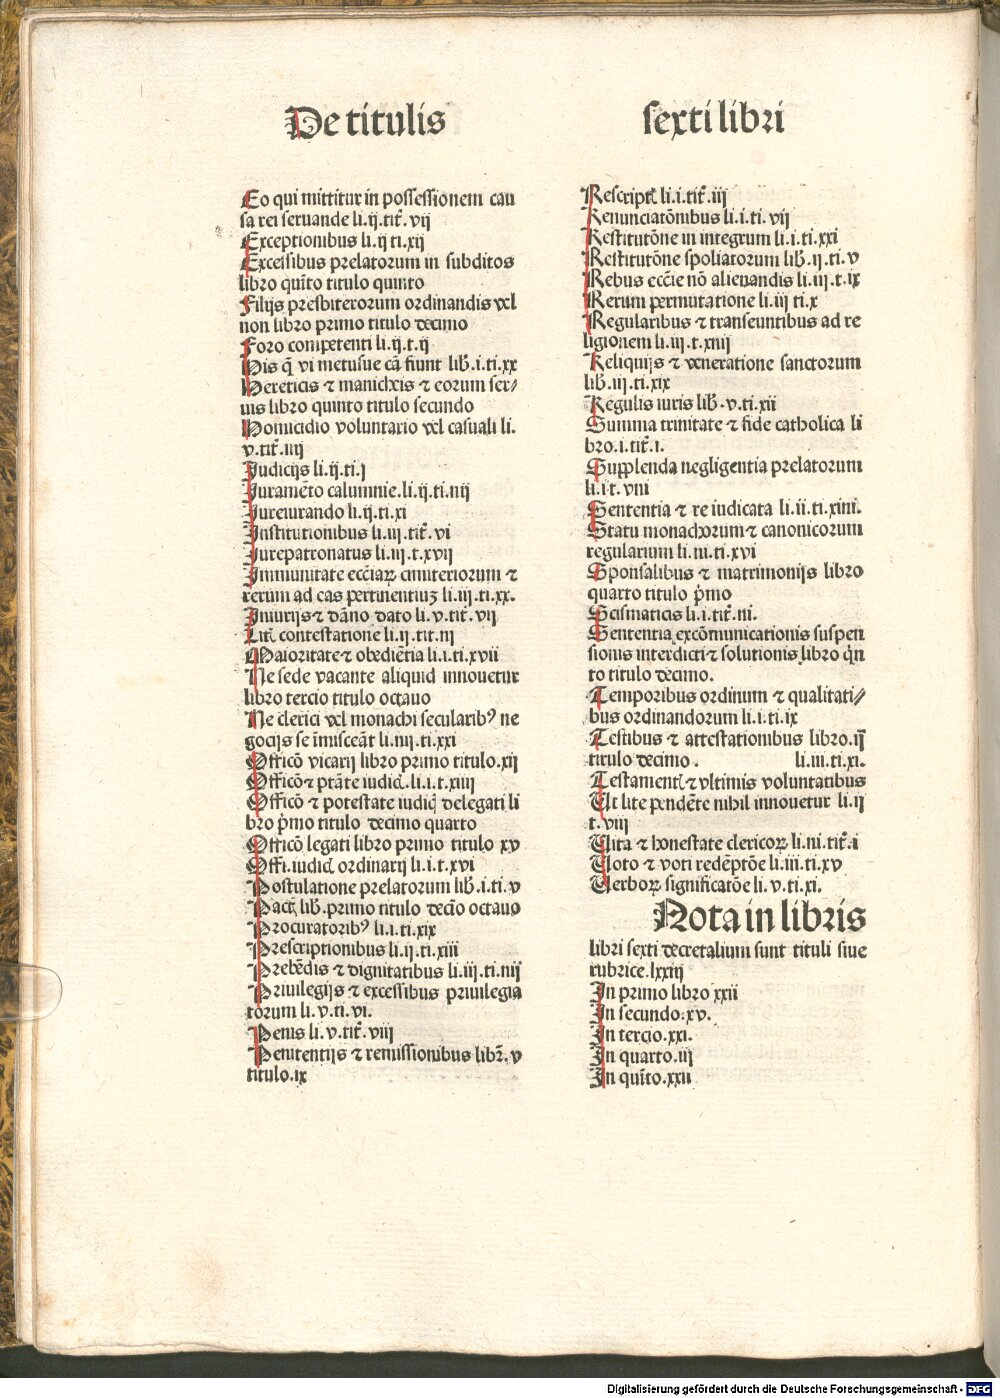 De titulis
Eo qui mittitur in possessionem cau
sa rei seruande li.ij.tit̄.vij
Exceptionibus li.ij ti.xij
Excessibus prelatorum in subditos
libro qui̅to titulo quinto
Filijs presbiterorum ordinandis vel
non libro primo titulo decimo
Foro competenti li.ij.t.ij
His q̄ vi metusue cā fiunt lib̄.i.ti.xx
Hereticis ⁊ manicheis ⁊ eorum ser⸗
uis libro quinto titulo secundo
Homicidio voluntario vel casuali li.
v.tit̄.iiij
Judicijs li.ij.ti.j
Jurame̅to calumnie.li.ij.ti.iiij
Jureiurando li.ij.ti.xi
Institutionibus li.iij.tit̄.vi
Jurepatronatus li.iij.t.xvij
Immunitate ecc̄iaꝝ cimiteriorum ⁊
rerum ad eas pertinentiuꝫ li.iij.ti.xx.
Iniurijs ⁊ dān̄o dato li.v.tit̄.vij
Lit̄ contestatione li.ij.tit.iij
Maioritate ⁊ obediētia li.i.ti.xvii
Ne sede vacante aliquid innouetur
libro tercio titulo octauo
Ne clerici vel monachi secularibꝰ ne
gocijs se īmisceāt li.iij.ti.xxi
Officō vicarij libro primo titulo.xij
Officō ⁊ ptāte iudic̄.li.i.t.xiiij
Officō ⁊ potestate iudic̄ delegati li
bro p̄mo titulo decimo quarto
Officō legati libro primo titulo xv
Offi.iudic̄ ordinarij li.i.t.xvi
Postulatione prelatorum lib̄.i.ti.v
Pact̄ lib̄.primo titulo decīo octauo
Procuratoribꝰ li.i.ti.xix
Prescriptionibus li.ij.ti.xiii
Prebēdis ⁊ dignitatibus li.iij.ti.iiij
Priuilegijs ⁊ excessibus priuilegia
torum li.v.ti.vi.
Penis li.v.tit̄.viij
Penitentijs ⁊ remissionibus libr̄.v
titulo.ix
sexti libri
Rescript̄ li.i.tit̄.iij
Renunciatōnibus li.i.ti.vij
Restitutōne in integrum li.i.ti.xxi
Restitutōne spoliatorum lib̄.ij.ti.v
Rebus ecc̄ie nō alienandis li.iij.t.ix
Rerum permutatione li.iij ti.x
Regularibus ⁊ transeuntibus ad re
ligionem li.iij.t.xiiij
Reliquijs ⁊ veneratione sanctorum
lib̄.iij.ti.xix
Regulis iuris lib̄.v.ti.xij
Summa trinitate ⁊ fide catholica li
bro.i.tit̄.i.
Supplenda negligentia prelatorum
li.i.t.viij
Sententia ⁊ re iudicata li.ii.ti.xiiii.
Statu monachorum ⁊ canonicorum
regularium li.iii.ti.xvi
Sponsalibus ⁊ matrimonijs libro
quarto titulo p̄mo
Scismaticis li.i.tit̄.iii.
Sententia excōmunicationis suspen
sionis interdicti ⁊ solutionis libro q̄n
to titulo decimo.
Temporibus ordinum ⁊ qualitati⸗
bus ordinandorum li.i.ti.ix
Testibus ⁊ attestationibus libro.ij
titulo decimo. li.iii.ti.xi.
Testament̄ ⁊ vltimis voluntatibus
Ut lite pendēte nihil innouetur li.ij
t.viij
Vita ⁊ honestate clericoꝝ li.iii.tit̄.i
Voto ⁊ voti redēptōe li.iii.ti.xv
Verboꝝ significatōe li.v.ti.xi.
Nota in libris
libri sexti decretalium sunt tituli siue
rubrice.lxxiij
In primo libro xxii
In secundo.xv.
In tercio.xxi.
In quarto.iij
In qui̅to.xxij
Digitalisierung gefördert durch die Deutsche Forschungsgemeinschaft - DFG